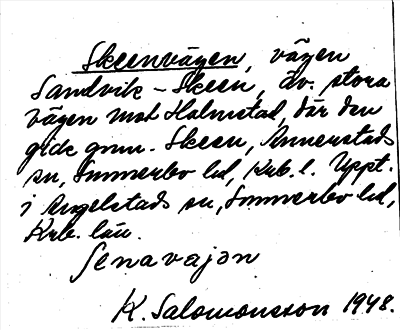 Skeenvägen, vägen
Sandvik - Skeen, äv. stora
vägen mot Halmstad, där den
gick gnm. Skeen, Annerstads
sn, Sunnerbo hd, Krb. l. Uppt.
i Angelstads sn, Sunnerbo hd,
Krb. län.
Senavajən
K. Salomonsson 1948.